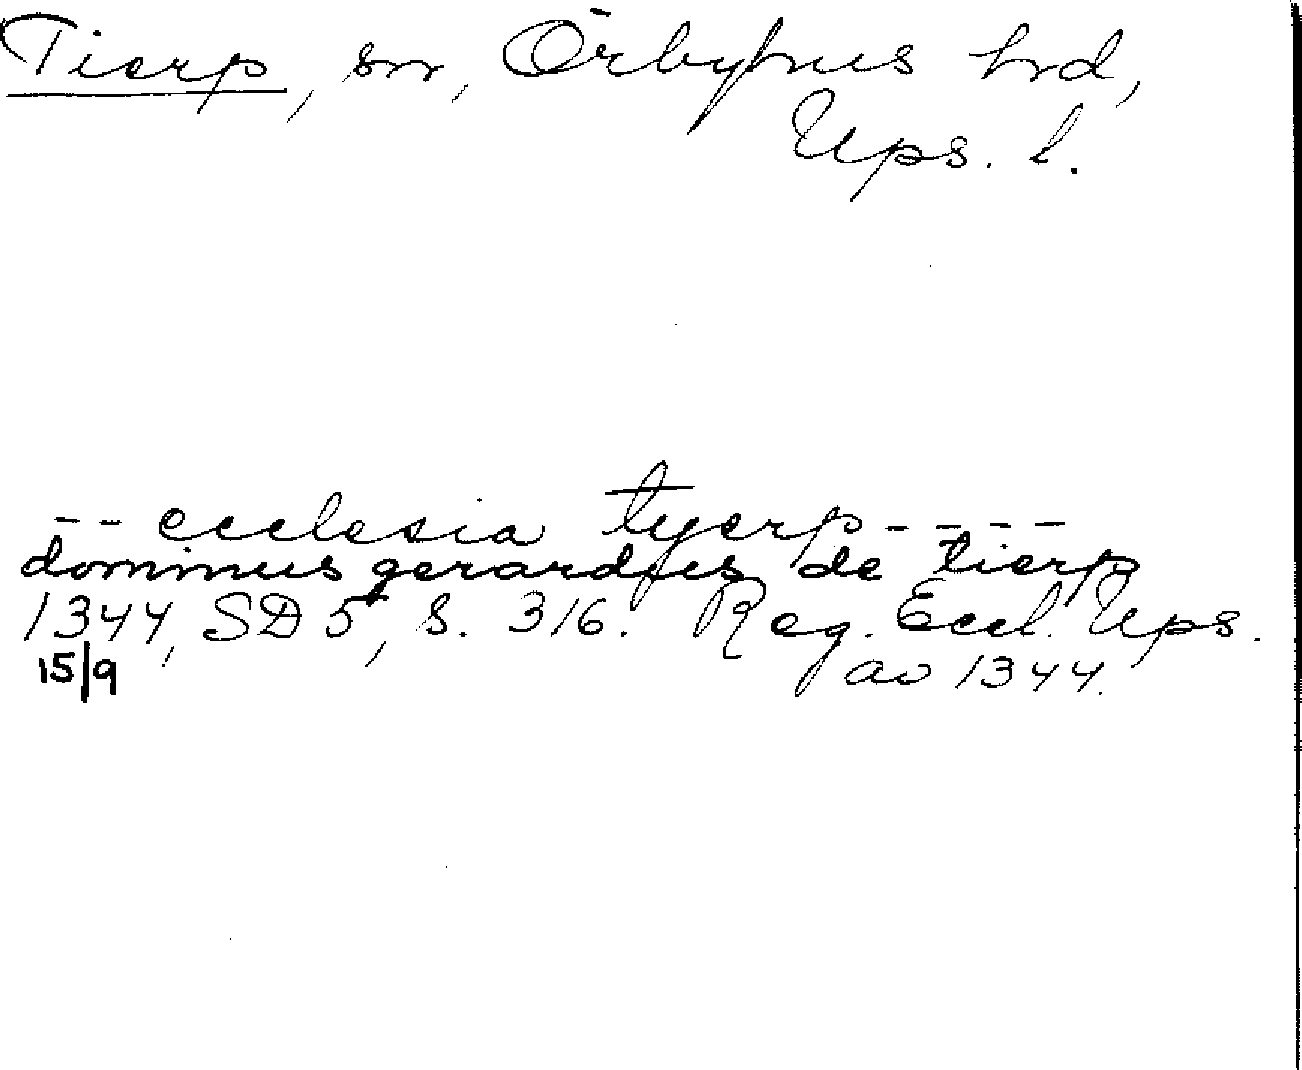 Tierp, sn, Örbyhus hrd,
Ups. l.
-- ecclesia tyerp ----
dominus gerardus de tierp
1344, SD 5, S. 316. Reg. Eccl. Ups.
15/9 av 1344.